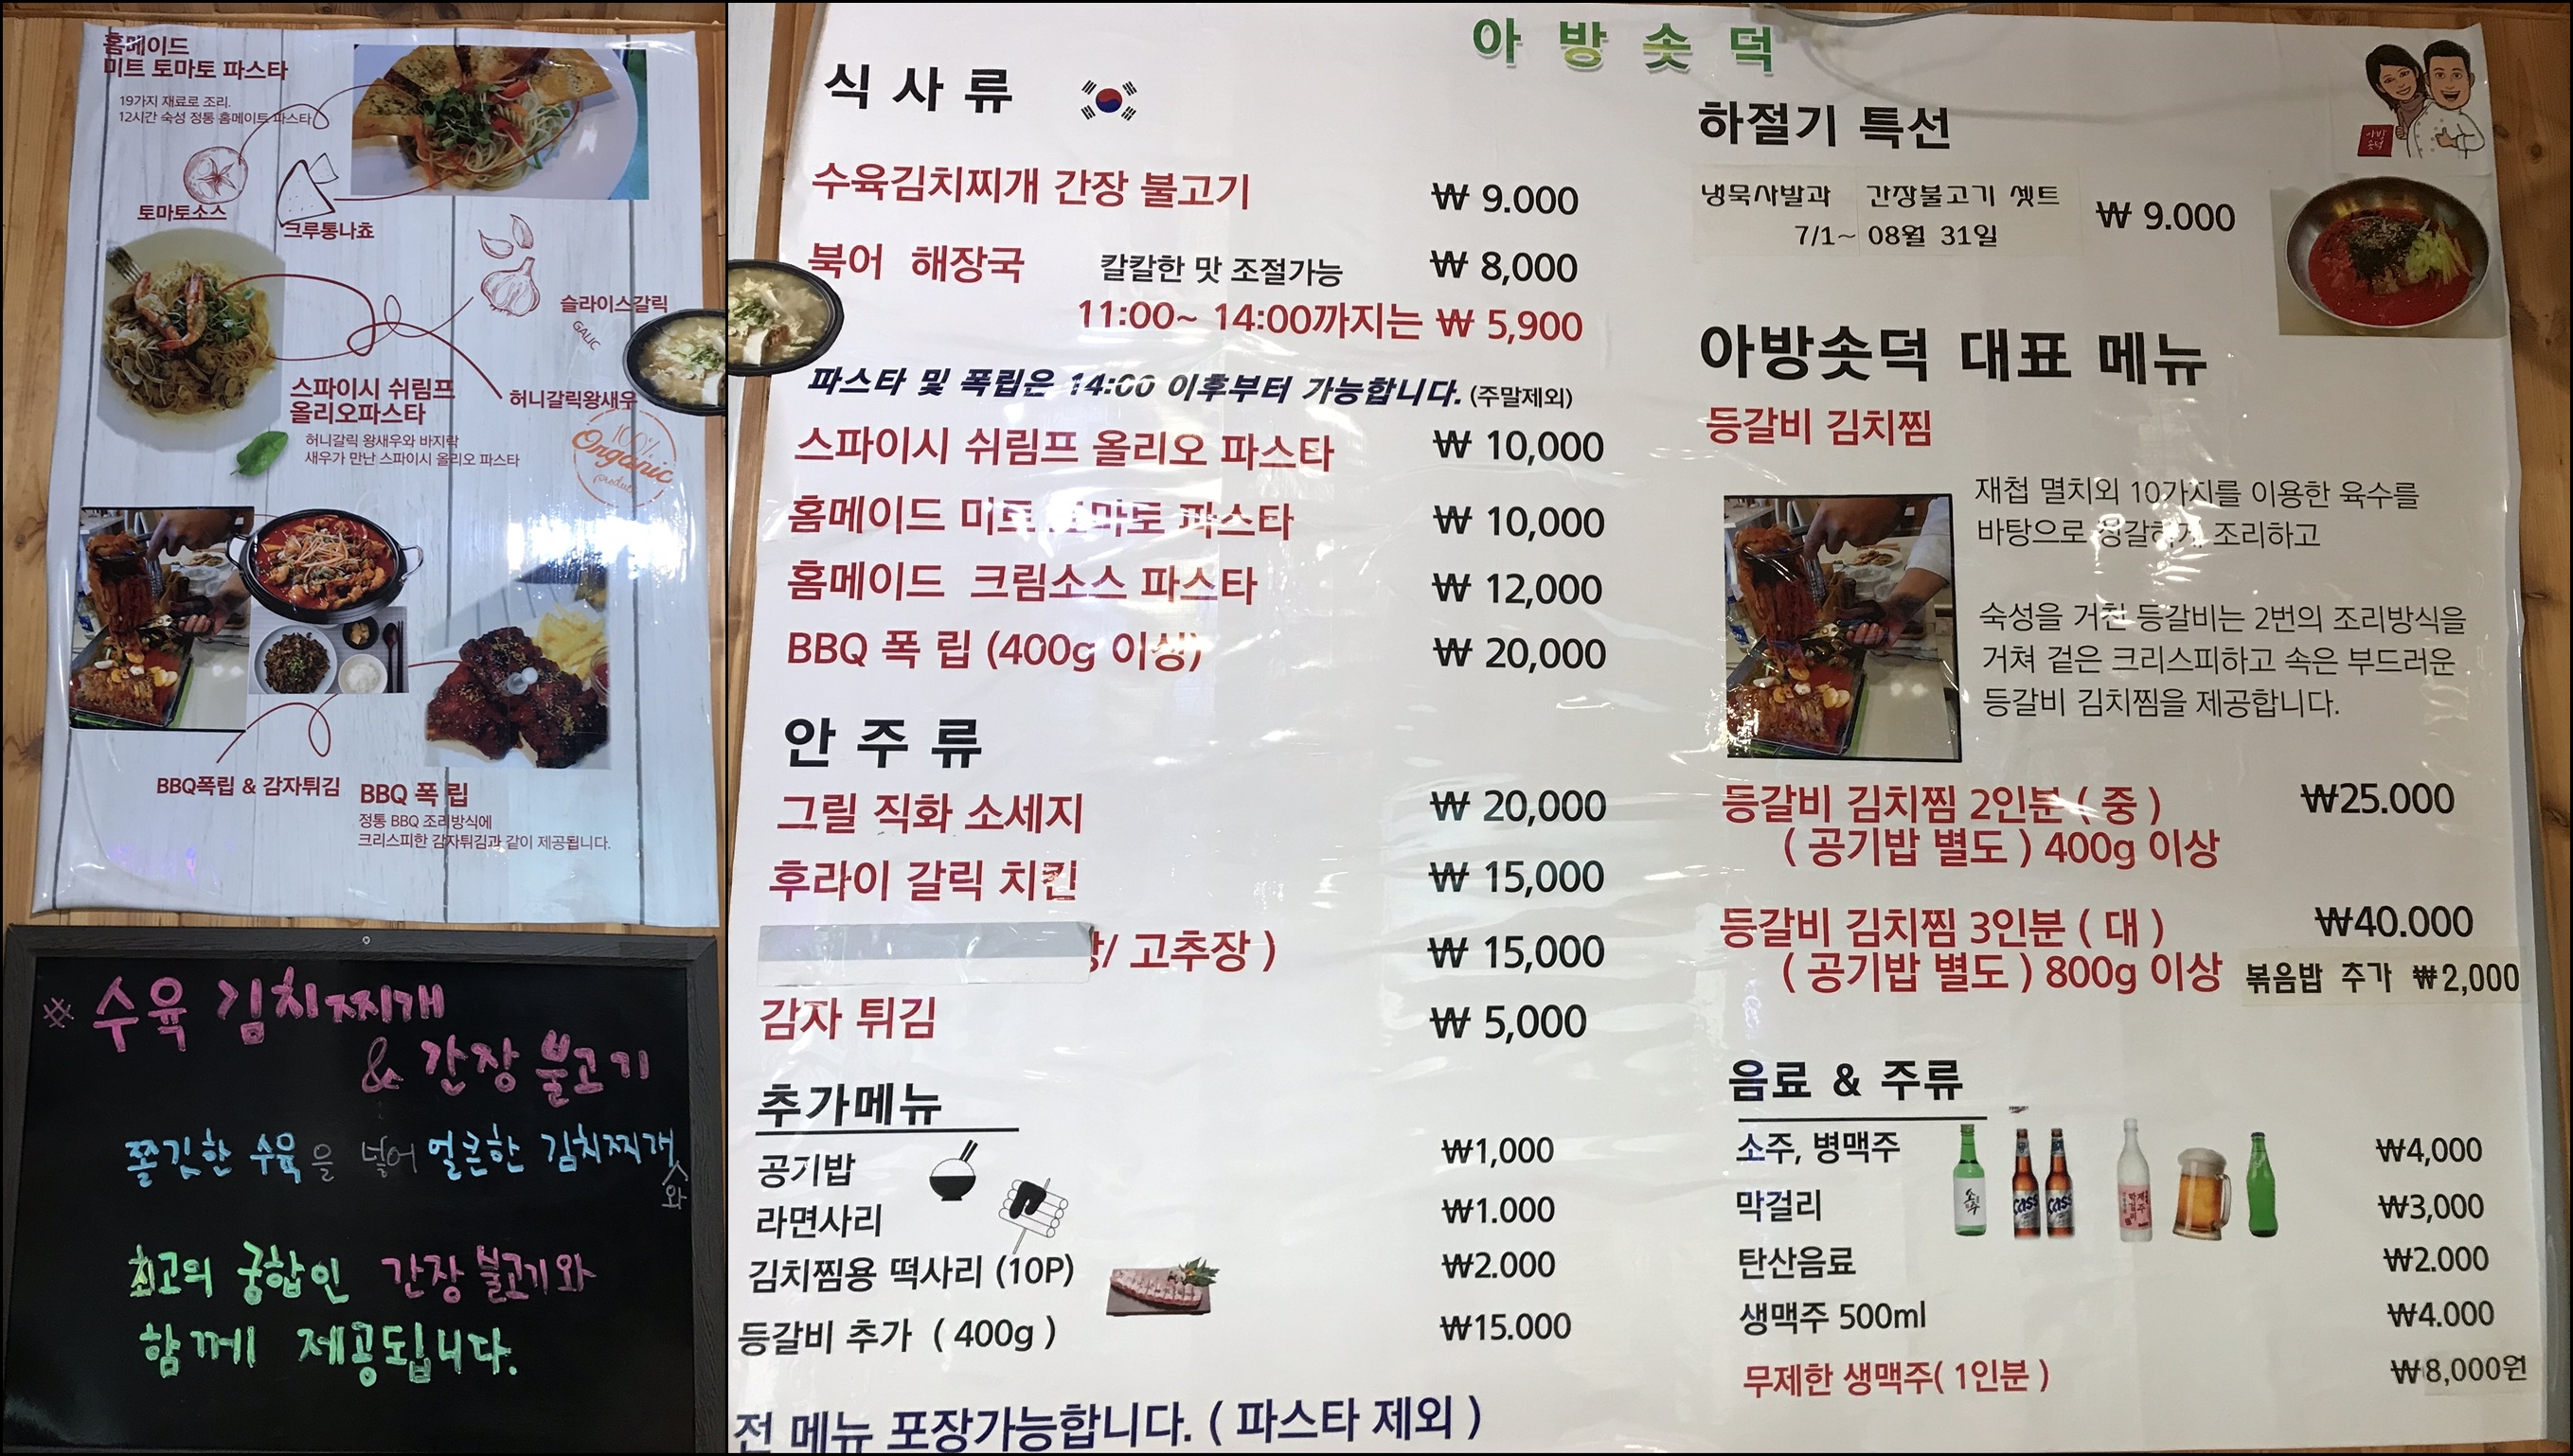 홈메이드
미트 토마토 파스타
19가지 재료로 조리.
12시간 숙성 정통 홈메이트 파스타
토마토소스
크루통나쵸
슬라이스갈릭
GALIC
스파이시 쉬림프
올리오파스타
허니갈릭왕새우
허니갈릭 왕새우와 바지락
새우가 만난 스파이시 올리오 파스타
100%
Organic
product
BBQ폭립 & 감자튀김
BBQ 폭 립
정통 BBQ 조리방식에
크리스피한 감자튀김과 같이 제공됩니다.
※ 수육 김치찌개
& 간장 불고기
쫄깃한 수육을 넣어 얼큰한 김치찌개와
최고의 궁합인 간장 불고기와
함께 제공됩니다.
아 방 솟 덕
식 사 류
수육김치찌개 간장 불고기 ₩ 9.000
북어 해장국 칼칼한 맛 조절가능 ₩ 8,000
11:00~ 14:00까지는 ₩ 5,900
파스타 및 폭립은 14:00 이후부터 가능합니다. (주말제외)
스파이시 쉬림프 올리오 파스타 ₩ 10,000
홈메이드 미트 토마토 파스타 ₩ 10,000
홈메이드 크림소스 파스타 ₩ 12,000
BBQ 폭 립 (400g 이상) ₩ 20,000
안 주 류
그릴 직화 소세지 ₩ 20,000
후라이 갈릭 치킨 ₩ 15,000
/ 고추장 ) ₩ 15,000
감자 튀김 ₩ 5,000
추가메뉴
공기밥 ₩1,000
라면사리 ₩1.000
김치찜용 떡사리 (10P) ₩2.000
등갈비 추가 ( 400g ) ₩15.000
전 메뉴 포장가능합니다. ( 파스타 제외 )
하절기 특선
아방솟덕
냉묵사발과 간장불고기 셋트 ₩ 9.000
7/1~ 08월 31일
아방솟덕 대표 메뉴
등갈비 김치찜
재첩 멸치외 10가지를 이용한 육수를
바탕으로 정갈하게 조리하고
숙성을 거친 등갈비는 2번의 조리방식을
거쳐 겉은 크리스피하고 속은 부드러운
등갈비 김치찜을 제공합니다.
등갈비 김치찜 2인분 ( 중 ) ₩25.000
( 공기밥 별도 ) 400g 이상
등갈비 김치찜 3인분 ( 대 ) ₩40.000
( 공기밥 별도 ) 800g 이상 볶음밥 추가 ₩2,000
음료 & 주류
소주, 병맥주 ₩4,000
막걸리 ₩3,000
탄산음료 ₩2.000
생맥주 500ml ₩4.000
무제한 생맥주( 1인분 ) ₩8,000원
Cass
Cass